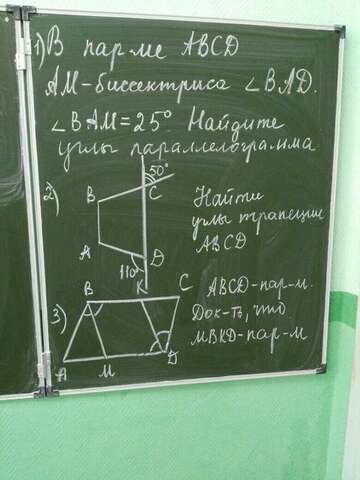 1) В пар-ме ABCD
АМ-биссектриса ∠BAD.
∠BAM=25° Найдите
углы параллелограмма
2)
50°
B
C
A
D
110°
K
Найти
углы трапеции
ABCD
3)
B
C
A
M
D
ABCD-пар-м.
Док-ть, что
MBKD-пар-м